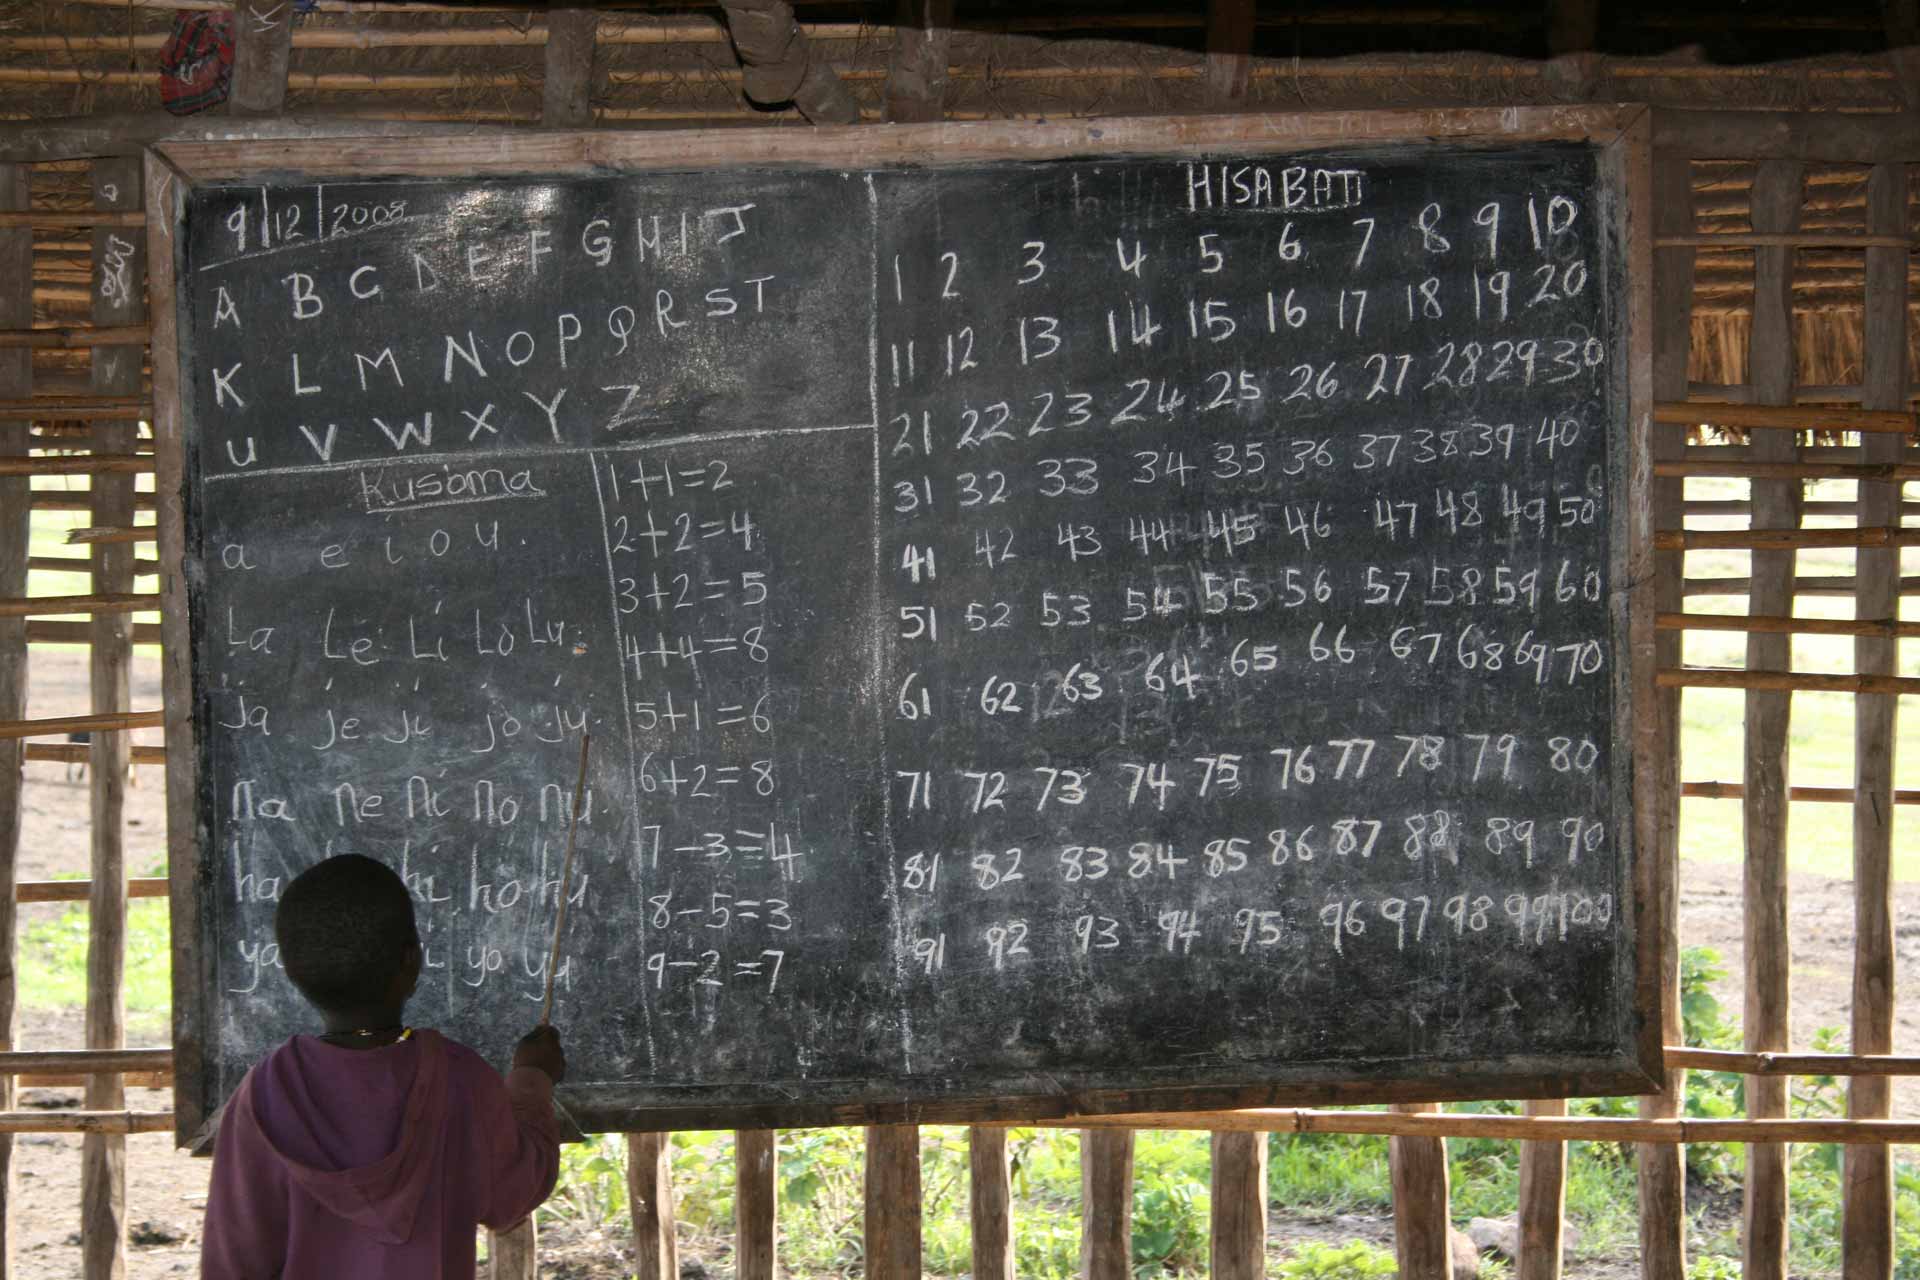 9/12/2008
A B C D E F G H I J
K L M N O P Q R S T
U V W X Y Z
Kusoma
a e i o u.
La Le Li Lo Lu
ja je ji jo ju
na ne ni no nu
ha hi ho hu
ya yo yu
1+1=2
2+2=4
3+2=5
4+4=8
5+1=6
6+2=8
7-3=4
8-5=3
9-2=7
HISABATI
1 2 3 4 5 6 7 8 9 10
11 12 13 14 15 16 17 18 19 20
21 22 23 24 25 26 27 28 29 30
31 32 33 34 35 36 37 38 39 40
41 42 43 44 45 46 47 48 49 50
51 52 53 54 55 56 57 58 59 60
61 62 63 64 65 66 67 68 69 70
71 72 73 74 75 76 77 78 79 80
81 82 83 84 85 86 87 88 89 90
91 92 93 94 95 96 97 98 99 100